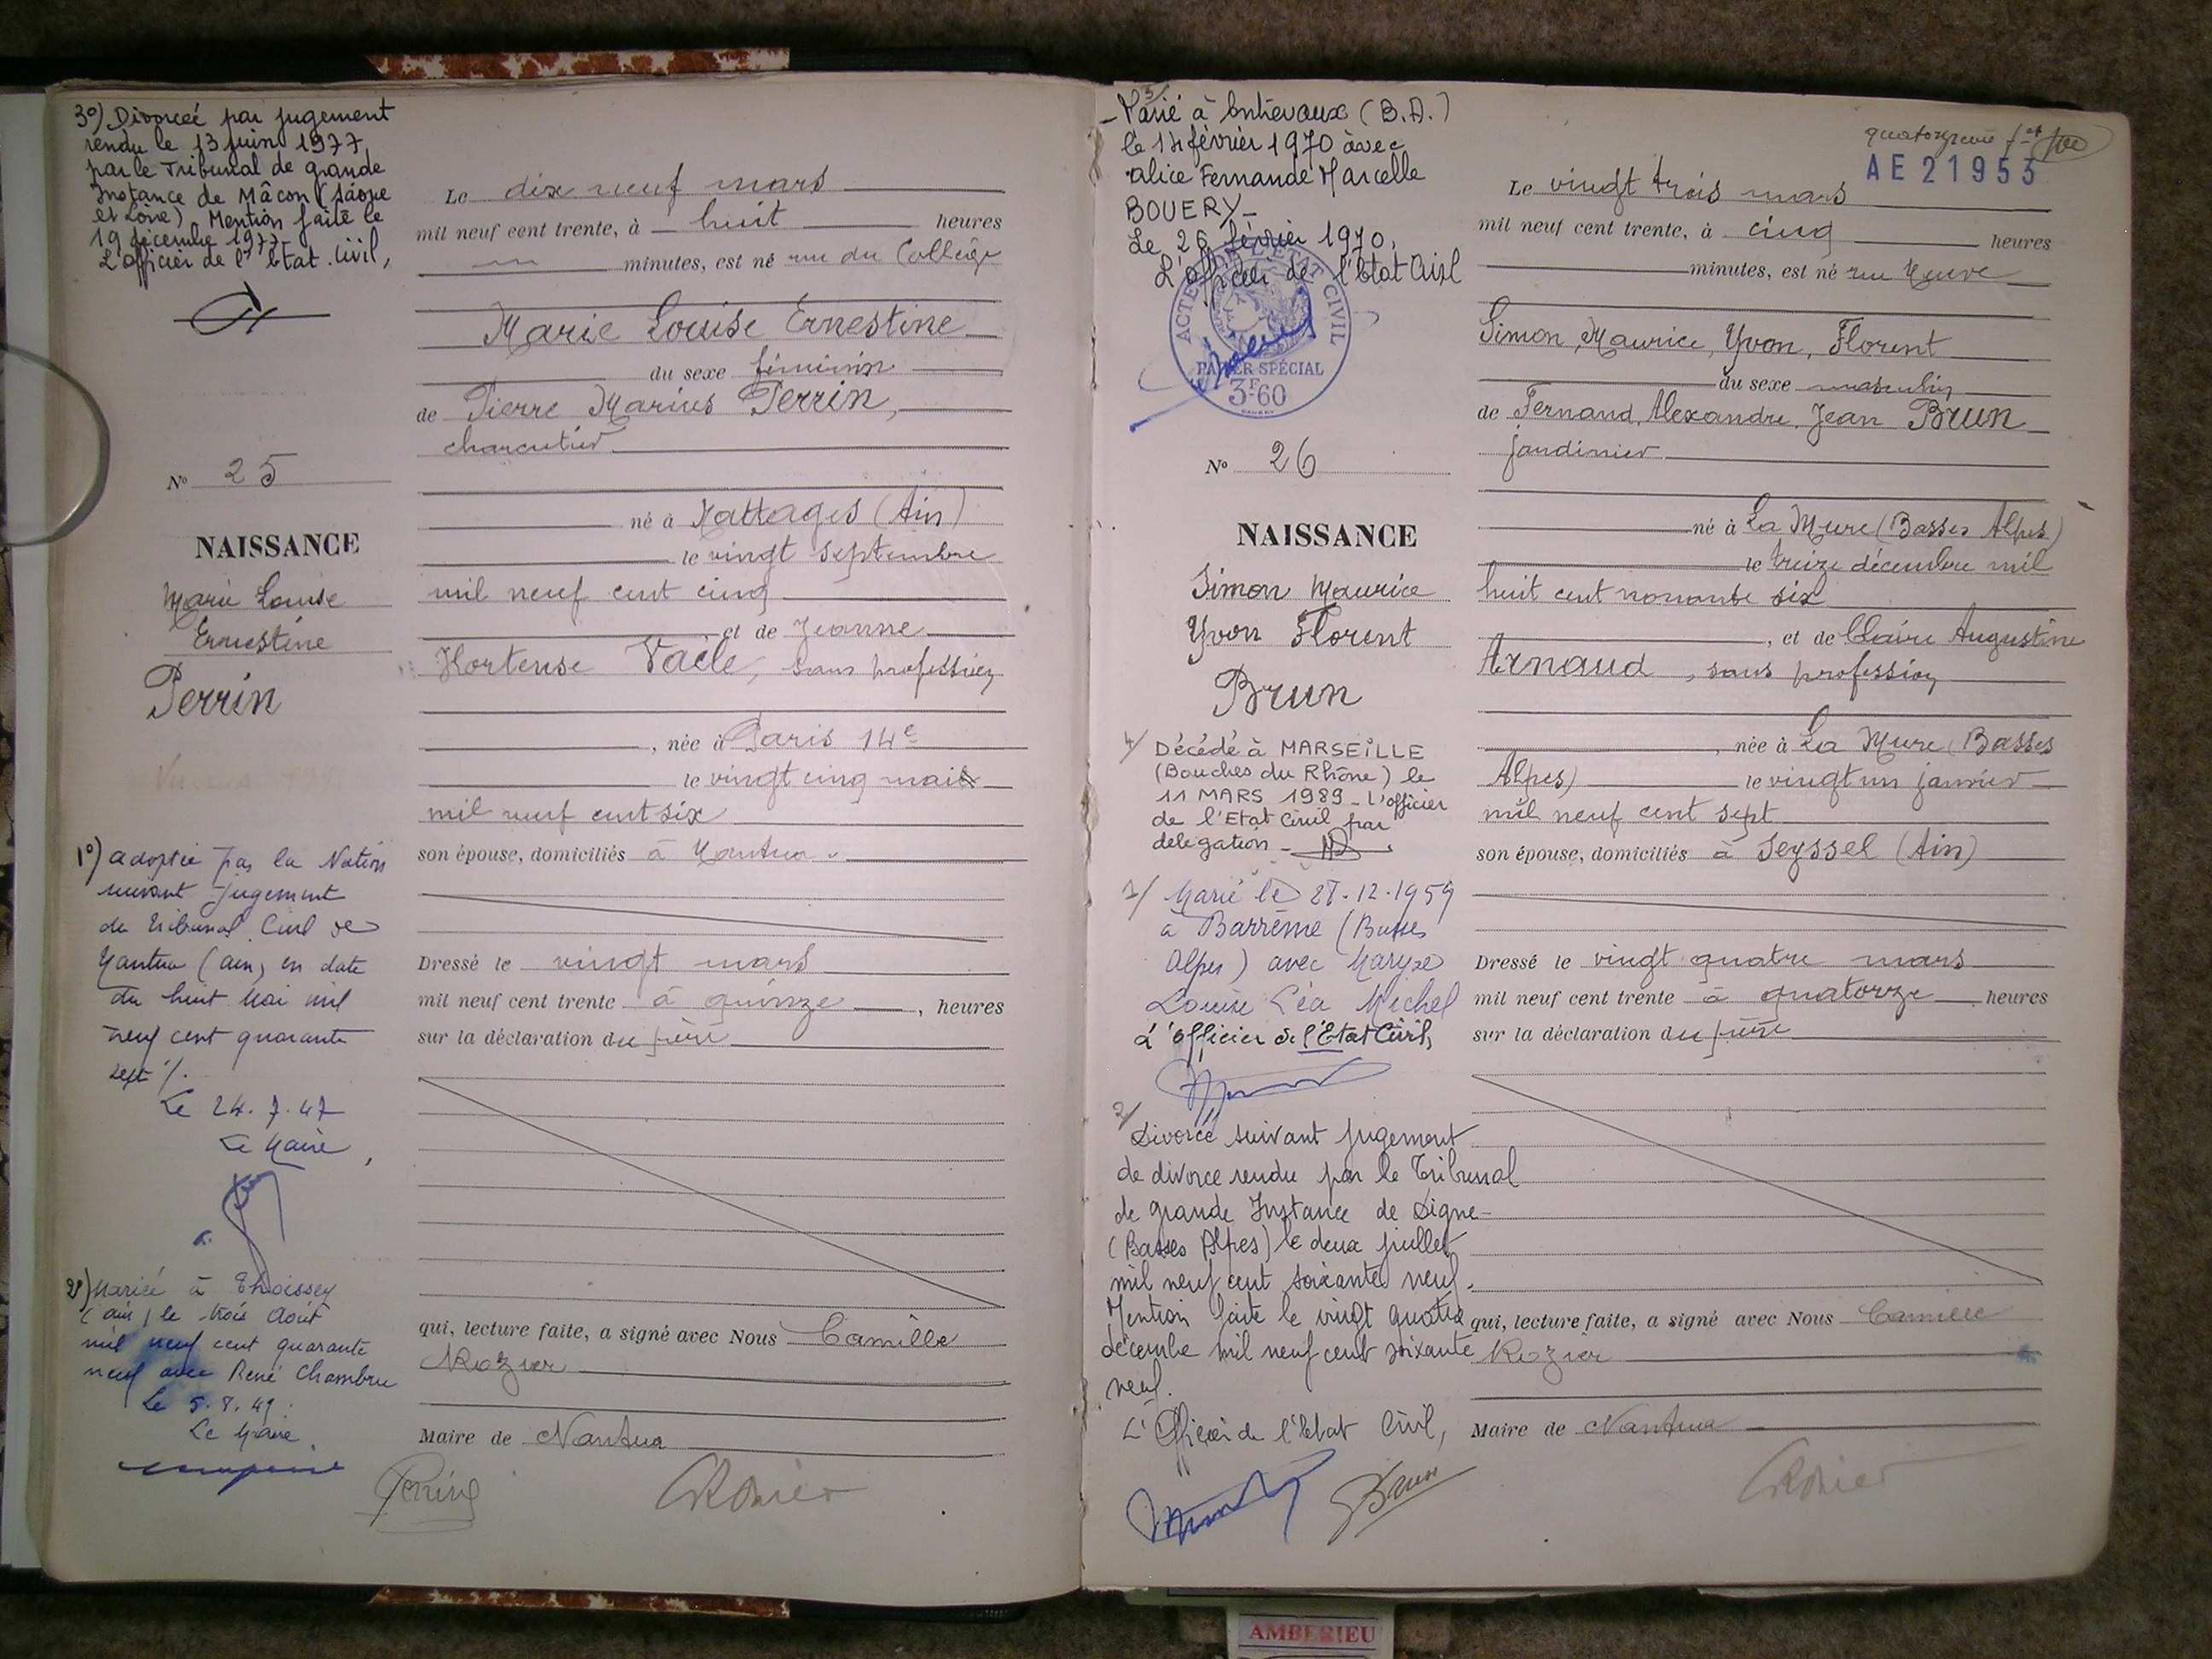 3°) Divorcée par jugement
rendu le 13 juin 1977,
par le Tribunal de grande
Instance de Mâcon (Saône
et Loire) Mention faite le
19 décembre 1977
L'officier de l'Etat Civil,
N° 25
NAISSANCE
Marie Louise
Ernestine
Perrin
1°) adoptée par la Nation
suivant jugement
du tribunal Civil de
Nantua (ain) en date
du huit Mai mil
neuf cent quarante
sept /.
Le 24.7.47
Le Maire,
2°) Mariée à Thoissey
(ain) le trois Août
mil neuf cent quarante
neuf avec René Chambru
Le 5.8.49.
Le Maire,
Le dix neuf mars
mil neuf cent trente, à huit heures
minutes, est né rue du Collège
Marie Louise Ernestine
du sexe féminin
de Pierre Marius Perrin,
charcutier
né à Nattages (Ain)
le vingt septembre
mil neuf cent cinq
et de Jeanne
Hortense Vacle, sans profession
, née à Paris 14e
le vingt cinq mai
mil neuf cent six
son épouse, domiciliés à Nantua.
Dressé le vingt mars
mil neuf cent trente à quinze, heures
sur la déclaration du père
qui, lecture faite, a signé avec Nous Camille
Rozier
Maire de Nantua
Perrin
CRozier
3/
- Marié à Entrevaux (B.A.)
le 14 février 1970 avec
Alice Fernande Marcelle
BOUERY -
Le 26 février 1970,
L'officier de l'Etat Civil
ACTE DE L'ETAT CIVIL
PAPIER SPÉCIAL
3F60
N° 26
NAISSANCE
Simon Maurice
Yvon Florent
Brun
4/ Décédé à MARSEILLE
(Bouches du Rhône) le
11 MARS 1989 - L'officier
de l'Etat Civil par
délégation -
1/ Marié le 28.12.1959
à Barrème (Basses
Alpes) avec Maryse
Louise Léa Michel
L'Officier de l'Etat Civil,
2/
Divorcé suivant jugement
de divorce rendu par le Tribunal
de grande Instance de Digne
(Basses Alpes) le deux juillet
mil neuf cent soixante neuf.
Mention faite le vingt quatre
décembre mil neuf cent soixante
neuf.
L'Officier de l'Etat Civil,
quatorzième f-et
AE 21953
Le vingt trois mars
mil neuf cent trente, à cinq heures
minutes, est né rue Neuve
Simon, Maurice, Yvon, Florent
du sexe masculin
de Fernand, Alexandre, Jean Brun
jardinier
né à La Mure (Basses Alpes)
le treize décembre mil
huit cent nonante six
, et de Claire Augustine
Arnaud, sans profession
, née à La Mure (Basses
Alpes) le vingt un janvier
mil neuf cent sept
son épouse, domiciliés à Seyssel (Ain)
Dressé le vingt quatre mars
mil neuf cent trente à quatorze heures
sur la déclaration du père
qui, lecture faite, a signé avec Nous Camille
Rozier
Maire de Nantua
Brun
CRozier
AMBERIEU